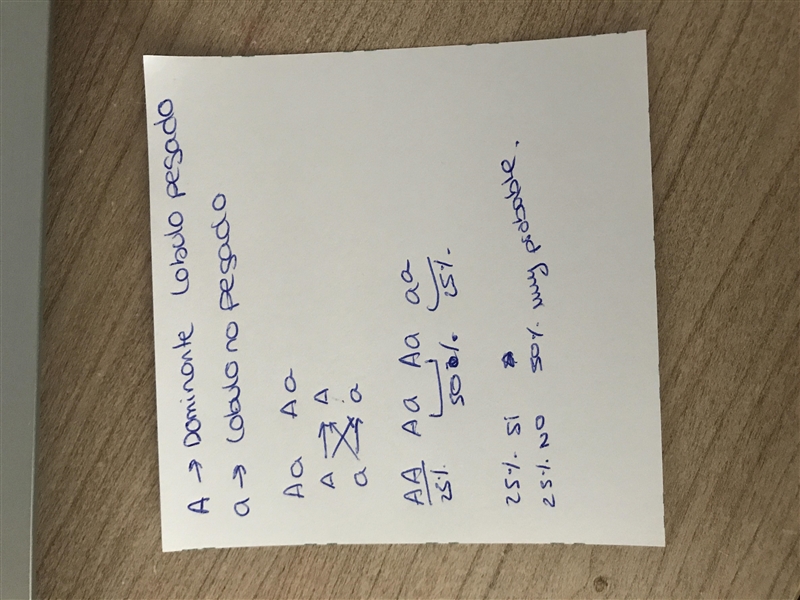 A → Dominante Lobulo pegado
a → Lobulo no pegado
Aa Aa
A → A
a → a
AA Aa Aa aa
25% 50% 25%
25% SI
25% NO 50% muy probable.